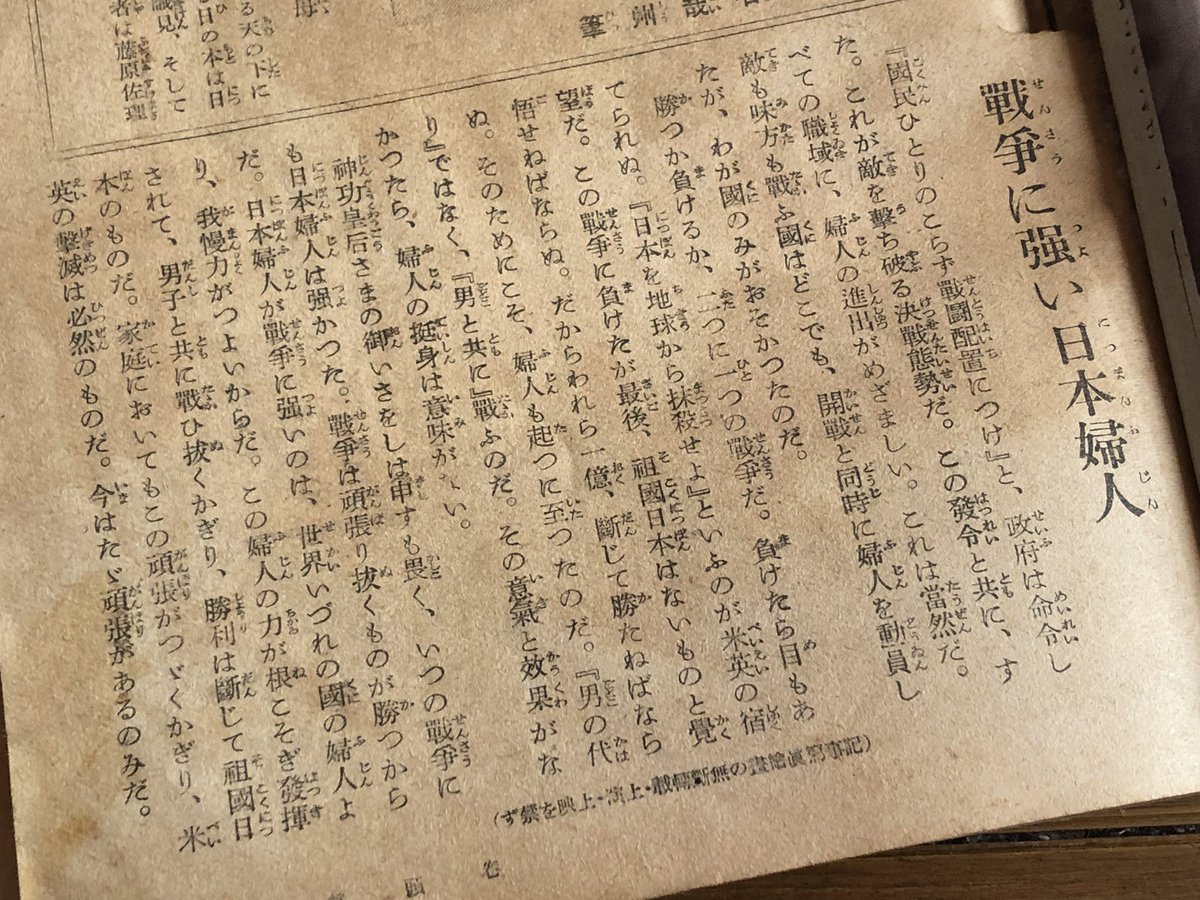 哉
州
筆
母
る天の下に
日の本は日
識見、そして
者は藤原佐理
戰爭に强い日本婦人
『國民ひとりのこらず戰鬪配置につけ』と、政府は命令し
た。これが敵を擊ち破る決戰態勢だ。この發令と共に、す
べての職域に、婦人の進出がめざましい。これは當然だ。
敵も味方も戰ふ國はどこでも、開戰と同時に婦人を動員し
たが、わが國のみがおそかつたのだ。
勝つか負けるか、二つに一つの戰爭だ。負けたら目もあ
てられぬ。『日本を地球から抹殺せよ』といふのが米英の宿
望だ。この戰爭に負けたが最後、祖國日本はないものと覺
悟せねばならぬ。だからわれら一億、斷じて勝たねばなら
ぬ。そのためにこそ、婦人も起つに至つたのだ。『男の代
り』ではなく、『男と共に』戰ふのだ。その意氣と效果がな
かつたら、婦人の挺身は意味がない。
神功皇后さまの御いさをしは申すも畏く、いつの戰爭に
も日本婦人は强かつた。戰爭は頑張り拔くものが勝つから
だ。日本婦人が戰爭に强いのは、世界いづれの國の婦人よ
り、我慢力がつよいからだ。この婦人の力が根こそぎ發揮
されて、男子と共に戰ひ拔くかぎり、勝利は斷じて祖國日
本のものだ。家庭においてもこの頑張がつゞくかぎり、米
英の擊滅は必然のものだ。今はたゞ頑張があるのみだ。
(ず禁を映上・演上・載轉斷無の畫繪眞寫事記)
頭 卷